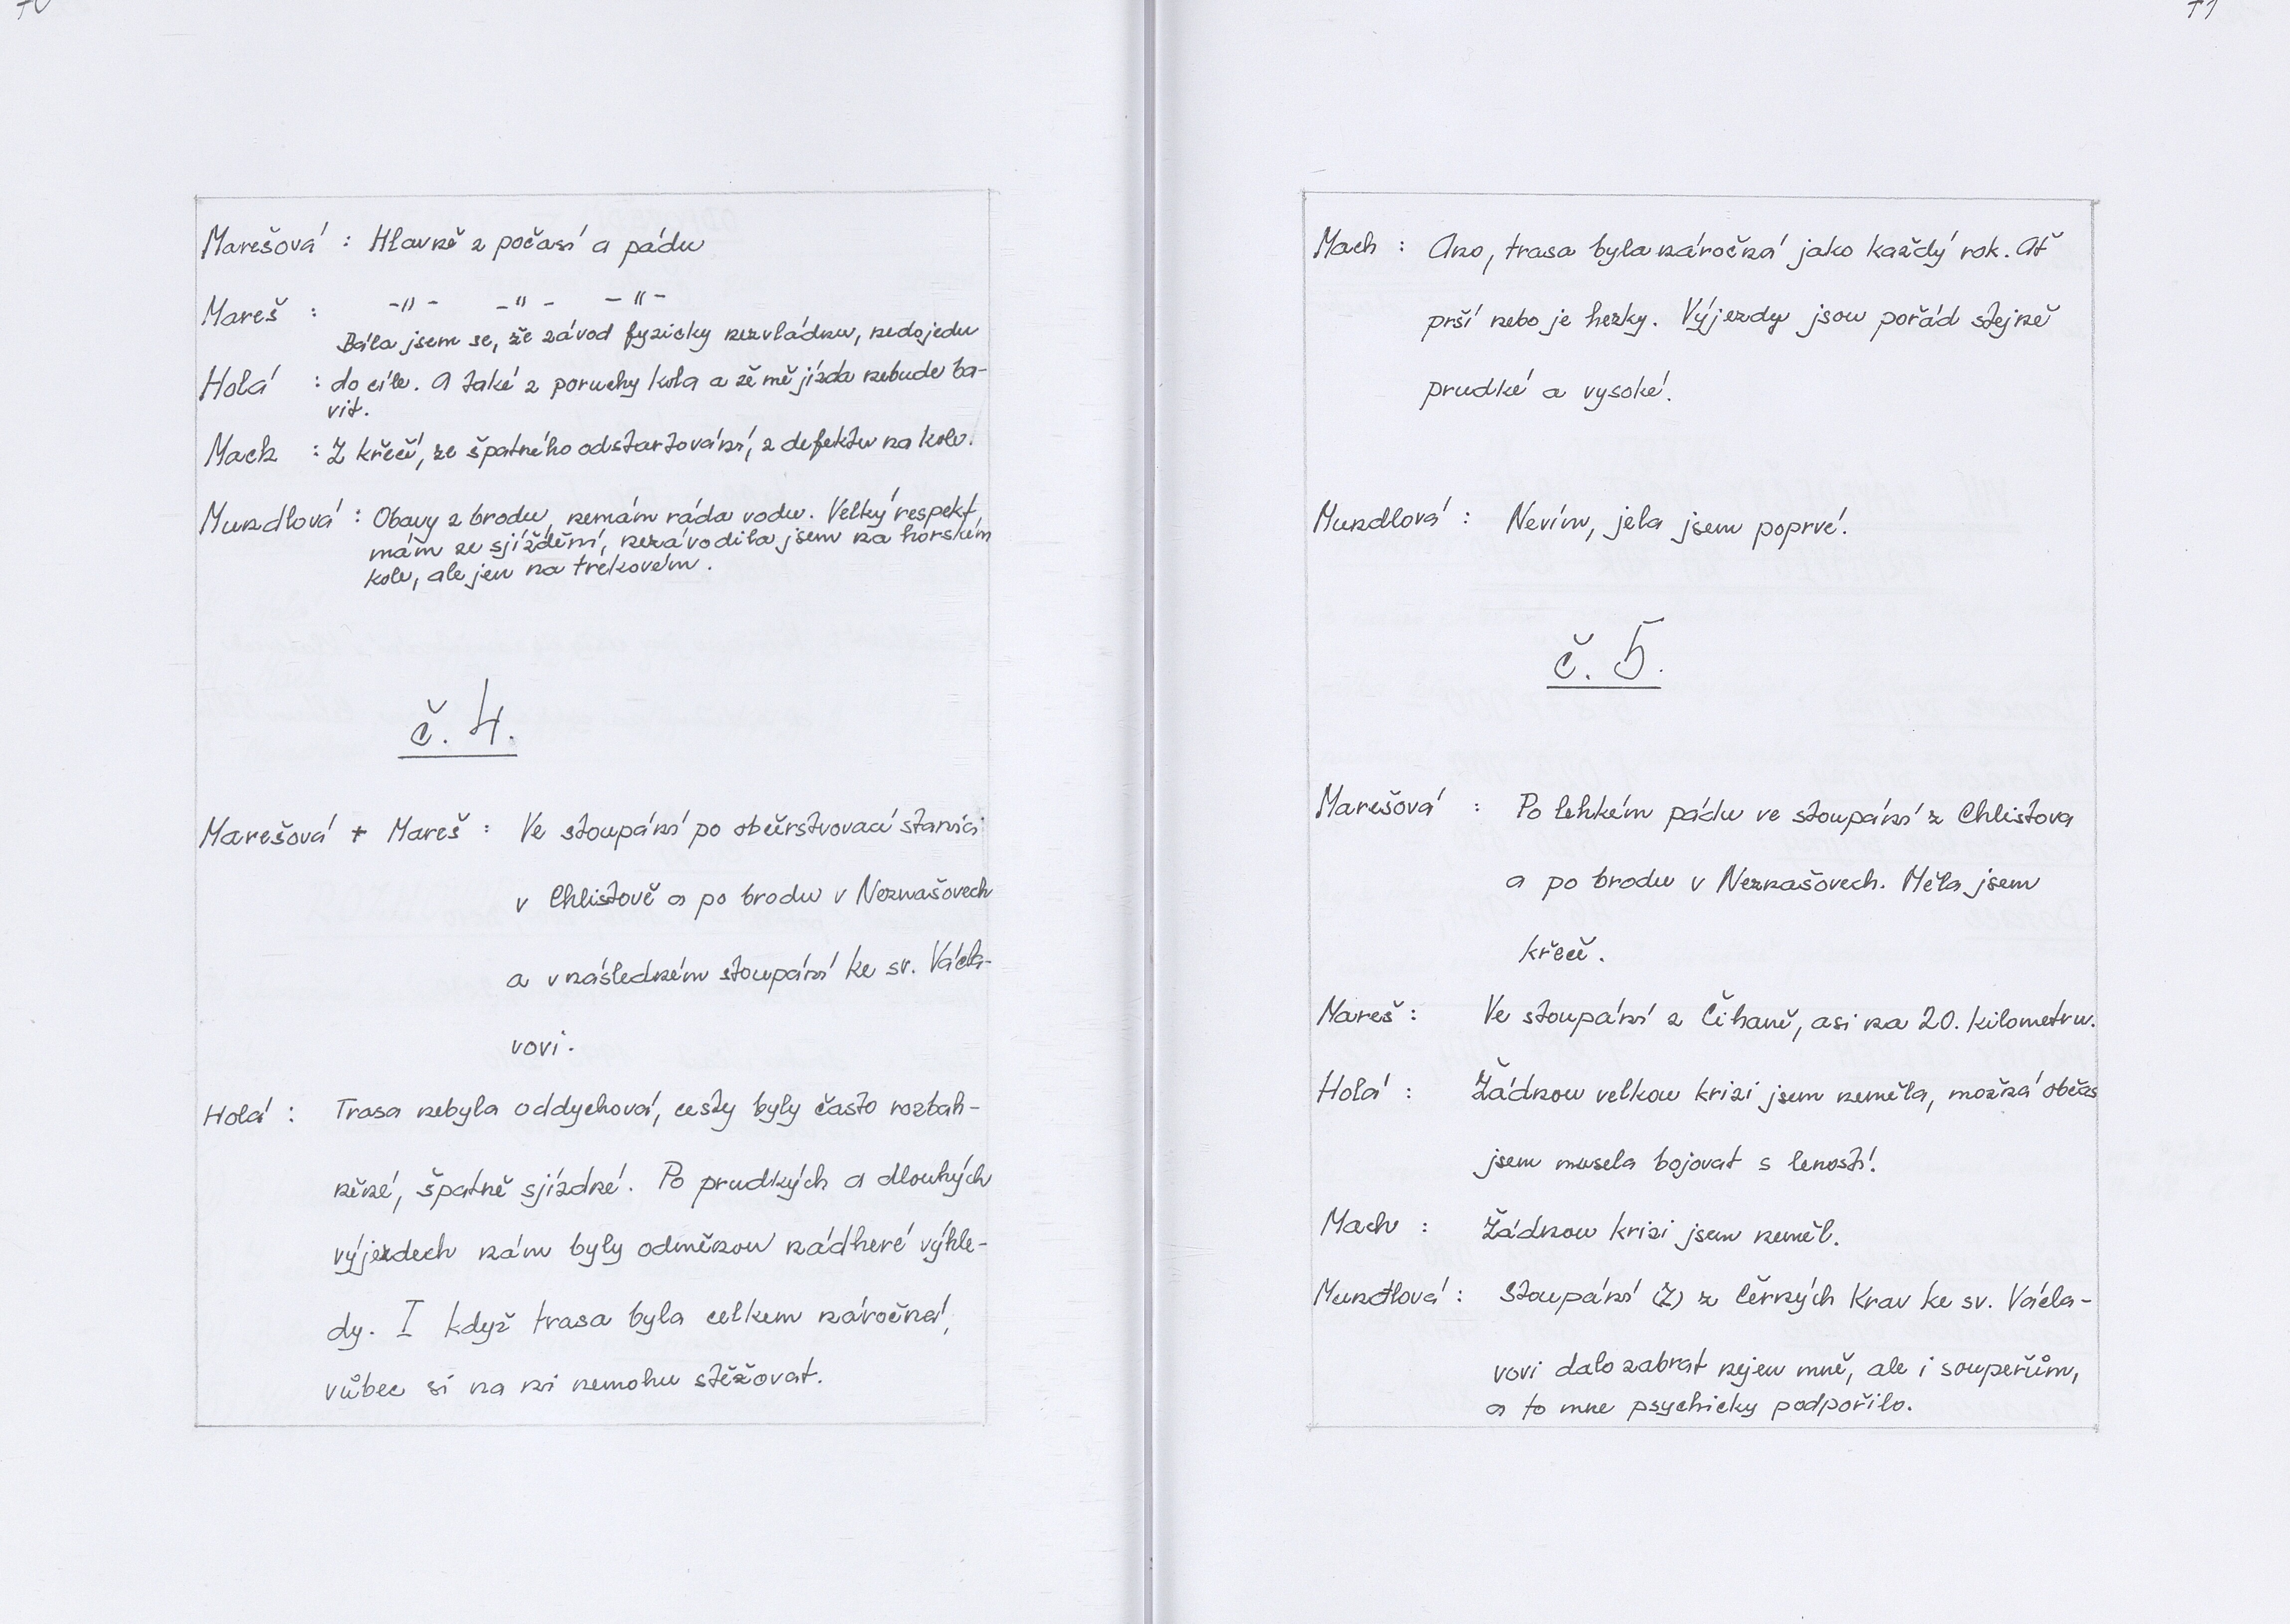 70
Marešová : Hlavně z počasí a pádu
Mareš : -"- -"- -"-
Bála jsem se, že závod fyzicky nezvládnu, nedojedu
Holá : do cíle. A také z poruchy kola a že mě jízda nebude ba-
vit.
Mach : Z křečí, ze špatného odstartování, z defektu na kole.
Mundlová : Obavy z brodu, nemám ráda vodu. Velký respekt
mám ze sjíždění, nezávodila jsem na horském
kole, ale jen na trekovém.
č. 4.
Marešová + Mareš : Ve stoupání po občerstvovací stanici
v Chlistově a po brodu v Neznašovech
a v následném stoupání ke sv. Václa-
vovi.
Holá : Trasa nebyla oddychová, cesty byly často rozbah-
něné, špatně sjízdné. Po prudkých a dlouhých
výjezdech nám byly odměnou nádheré výhle-
dy. I když trasa byla celkem náročná,
vůbec si na ni nemohu stěžovat.
71
Mach : Ano, trasa byla náročná jako každý rok. Ať
prší nebo je hezky. Výjezdy jsou pořád stejně
prudké a vysoké.
Mundlová : Nevím, jela jsem poprvé.
č. 5.
Marešová : Po lehkém pádu ve stoupání z Chlistova
a po brodu v Neznašovech. Měla jsem
křeče.
Mareš : Ve stoupání z Číhaně, asi na 20. kilometru.
Holá : Žádnou velkou krizi jsem neměla, možná občas
jsem musela bojovat s leností.
Mach : Žádnou krizi jsem neměl.
Mundlová : Stoupání (Z) z Černých Krav ke sv. Václa-
vovi dalo zabrat nejen mně, ale i soupeřům,
a to mne psychicky podpořilo.